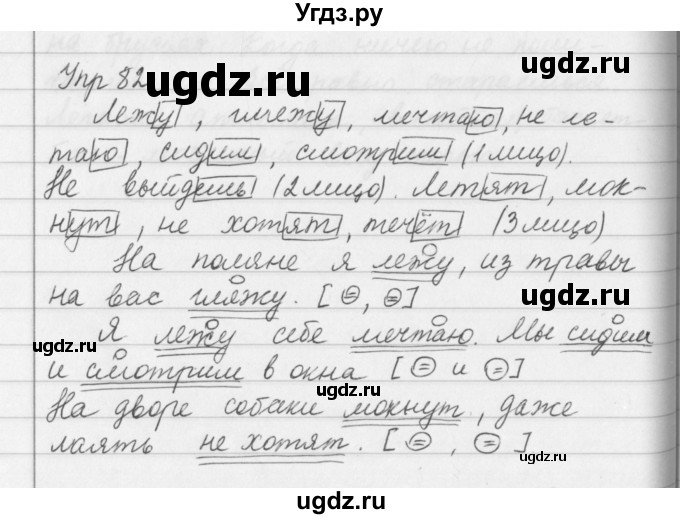 Угдз.ру
Упр 82
ugdz.ru
ugdz.ru
Лежу, гляжу, мечтаю, не ле-
таю, сидим, смотрим (1 лицо).
Не выйдешь (2 лицо). Летят, мок-
нут, не хотят, течёт (3 лицо)
ugdz.ru
ugdz.ru
На поляне я лежу, из травы
на вас гляжу. [=, =]
ugdz.ru
Я лежу себе мечтаю. Мы сидим
и смотрим в окна [= и =]
ugdz.ru
ugdz.ru
На дворе собаки мокнут, даже
лаять не хотят. [=, =]
ugdz.ru
ugdz.ru